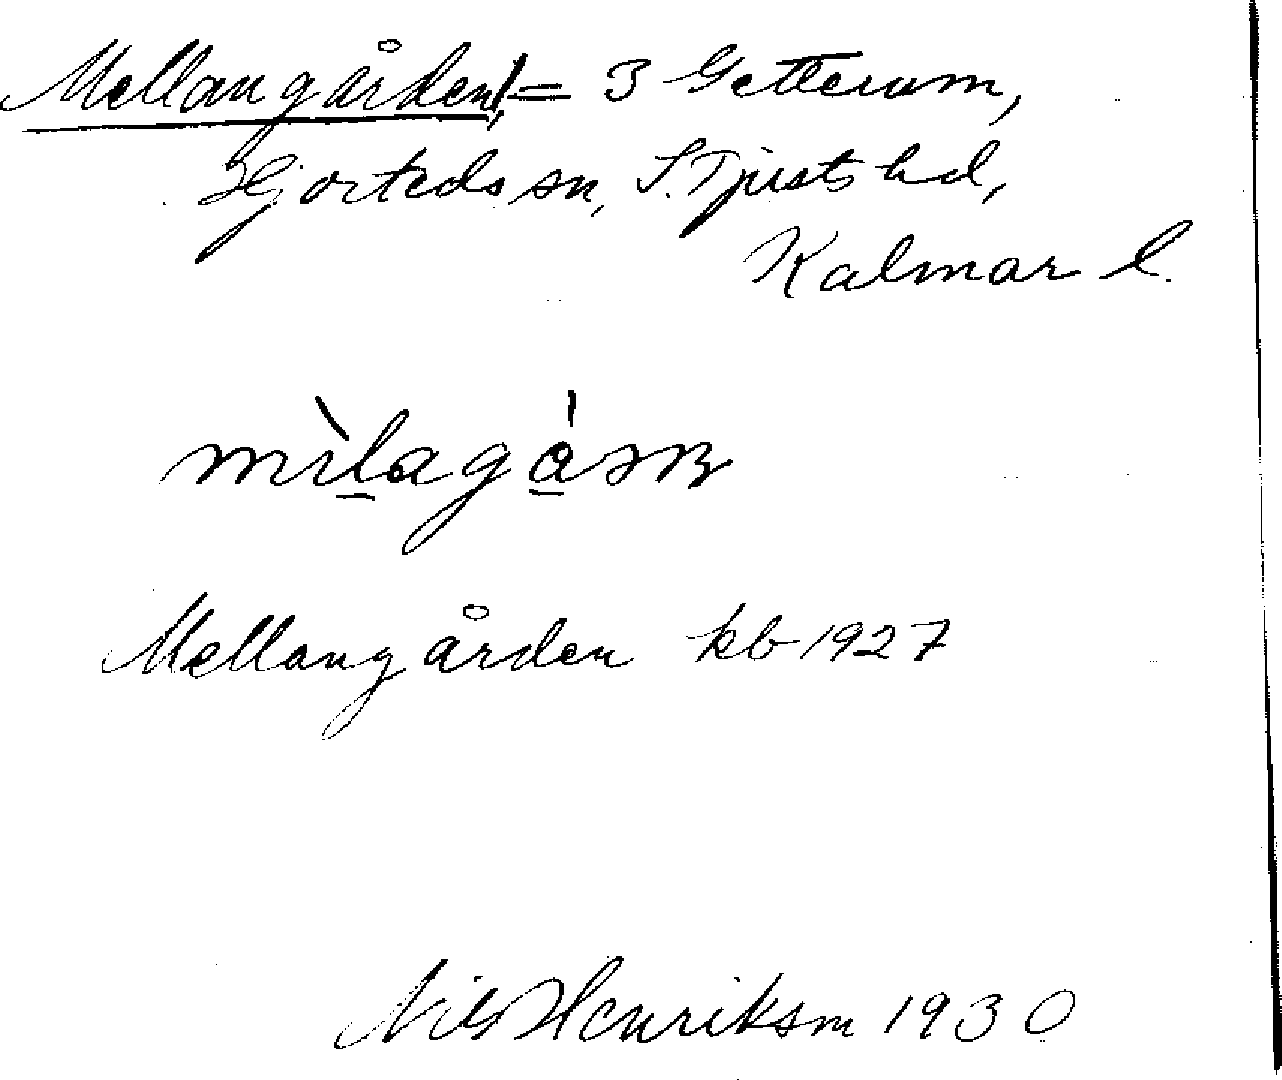 Mellangården, = 3 Getterum,
Hjorteds sn, S. Tjusts hd,
Kalmar l.
Mellangården kb 1927
Nils Henriksm 1930